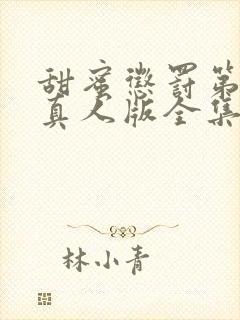 甜蜜懲罰第
真人版全集
林小青